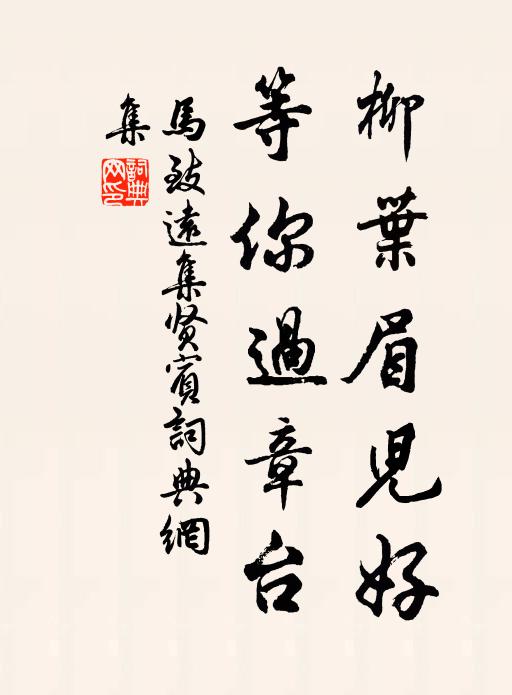 柳葉眉兒好
等你過章台
馬致遠集賢賓詞典網
集
詞典
网印